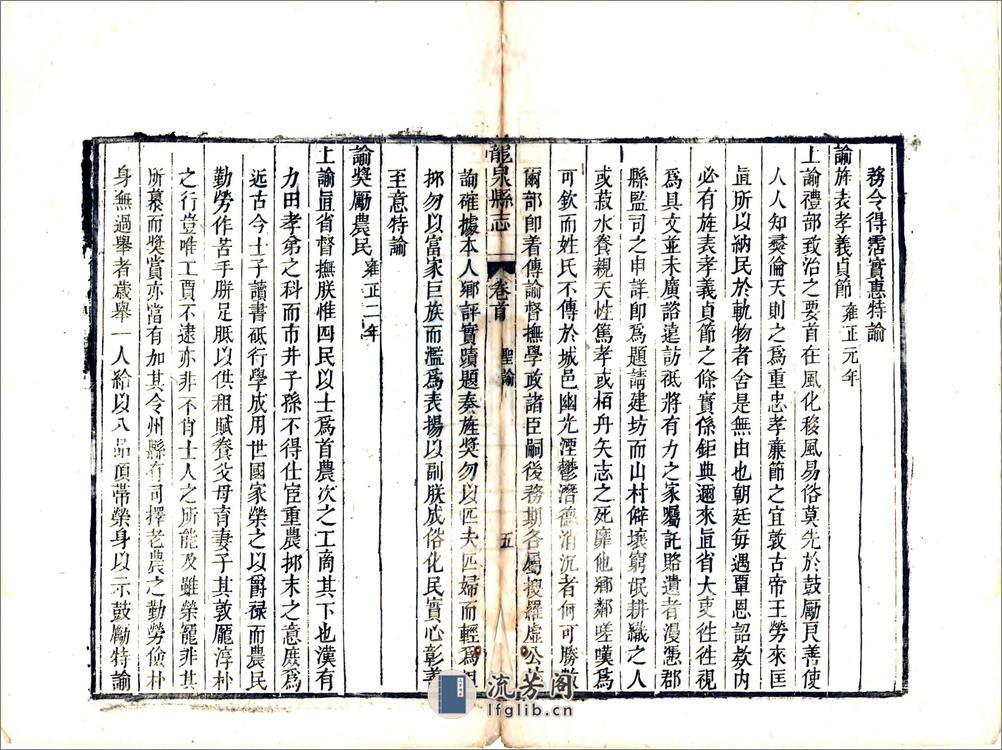 務令得霑實惠特諭
諭旌表孝義貞節雍正元年
上諭禮部致治之要首在風化移風易俗莫先於鼓勵良善使
人人知彝倫天則之爲重忠孝亷節之宜敦古帝王勞來匡
直所以納民於軌物者舍是無由也朝廷每遇覃恩詔欵内
必有旌表孝義貞節之條實係鉅典邇來直省大吏徃徃視
爲具文並未廣諮遠訪祇將有力之家囑託賂遺者漫慿郡
縣監司之申詳卽爲題請建坊而山村僻壤窮氓耕織之人
或菽水養親天性篤孝或栢舟矢志之死靡他鄕鄰嗟嘆爲
可欽而姓氏不傳於城邑幽光湮鬱潛德消沉者何可勝數
爾部卽着傳諭督撫學政諸臣嗣後務期各屬搜羅虛公
龍泉縣志
卷首
聖諭
五
詢確據本人鄕評實蹟題奏旌奬勿以匹夫匹婦而輕爲
抑勿以富家巨族而濫爲表揚以副朕成俗化民實心彰善
至意特諭
諭奬勵農民雍正二年
上諭直省督撫朕惟四民以士爲首農次之工商其下也漢有
力田孝弟之科而市井子孫不得仕宦重農抑末之意庶爲
近古今士子讀書砥行學成用世國家榮之以爵祿而農民
勤勞作苦手胼足胝以供租賦養父母育妻子其敦龎淳朴
之行豈唯工賈不逮亦非不肖士人之所能及雖榮寵非其
所慕而奬賞亦當有加其令州縣有司擇老農之勤勞儉朴
身無過舉者歳舉一人給以八品頂帶榮身以示鼓勵特諭
流芳阁
lfglib.cn